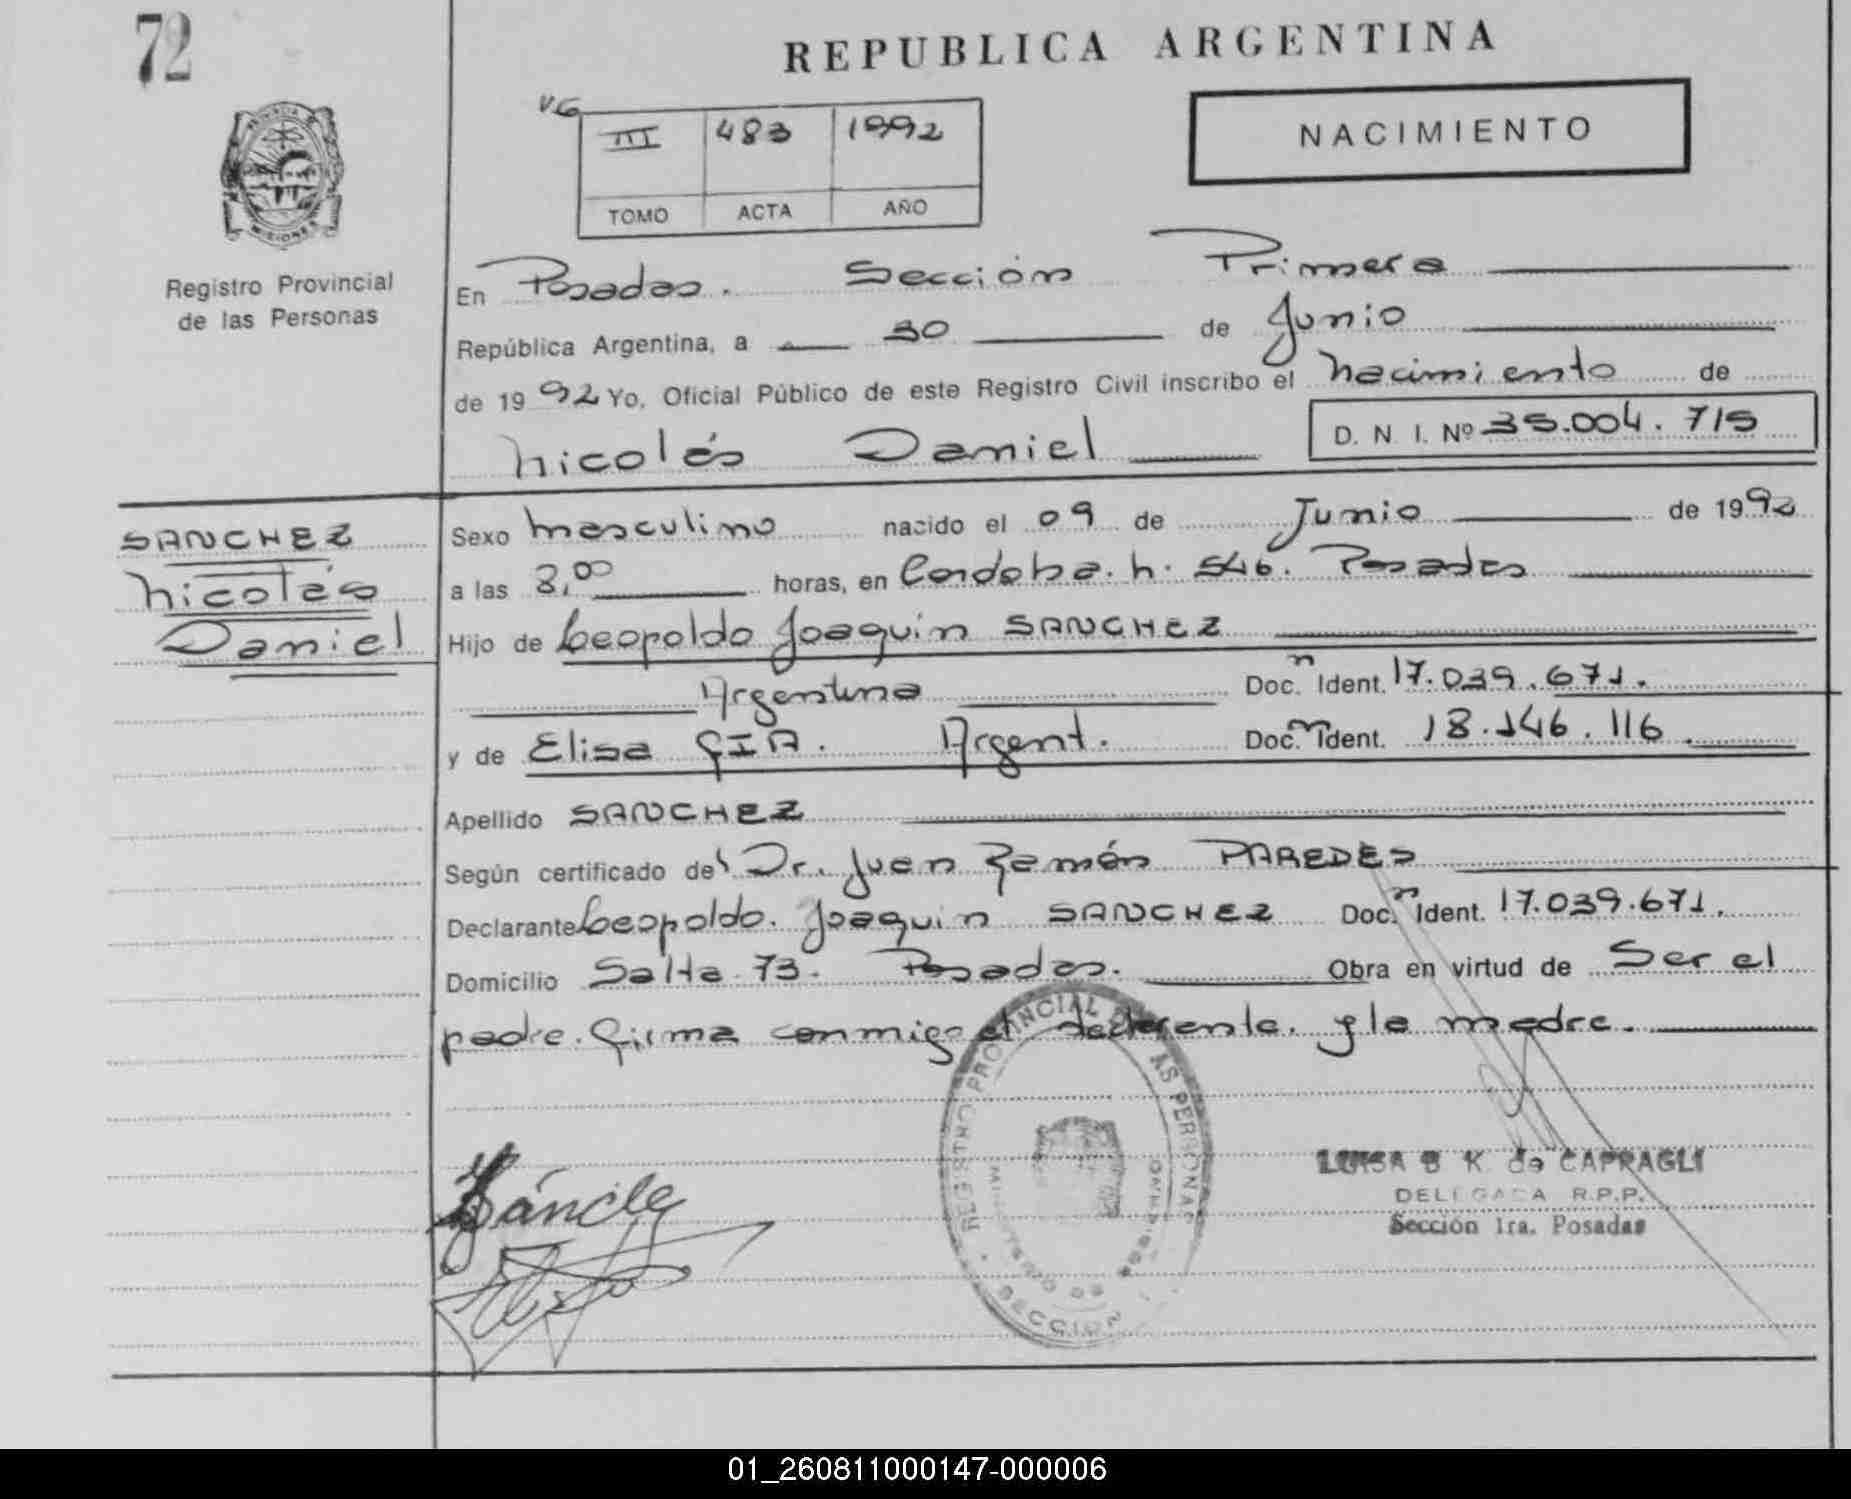 72
REPUBLICA ARGENTINA
NACIMIENTO
VG
III 483 1992
TOMO ACTA AÑO
PROVINCIA DE MISIONES
Registro Provincial
de las Personas
En Posadas. Sección Primera
República Argentina, a 30 de Junio
de 1992 Yo, Oficial Público de este Registro Civil inscribo el nacimiento de
Nicolás Daniel D. N. I. Nº 35.004.715
SANCHEZ
Nicolás
Daniel
Sexo masculino nacido el 09 de Junio de 1992
a las 8,00 horas, en Cordoba. n. 546. Posadas
Hijo de Leopoldo Joaquin SANCHEZ
Argentina Doc. n Ident. 17.039.671.
y de Elisa GIA. Argent. Doc. n Ident. 18.146.116.
Apellido SANCHEZ
Según certificado del Dr. Juan Ramón PAREDES
Declarante Leopoldo. Joaquin SANCHEZ Doc. n Ident. 17.039.671.
Domicilio Salta 73. Posadas. Obra en virtud de Ser el
padre. Firma conmigo el declarente. y la madre.
REGISTRO PROVINCIAL DE LAS PERSONAS
MINISTERIO DE GOBIERNO
SECCION
LUISA B K. de CAPRAGLI
DELEGADA R.P.P.
Sección 1ra. Posadas
01_260811000147-000006